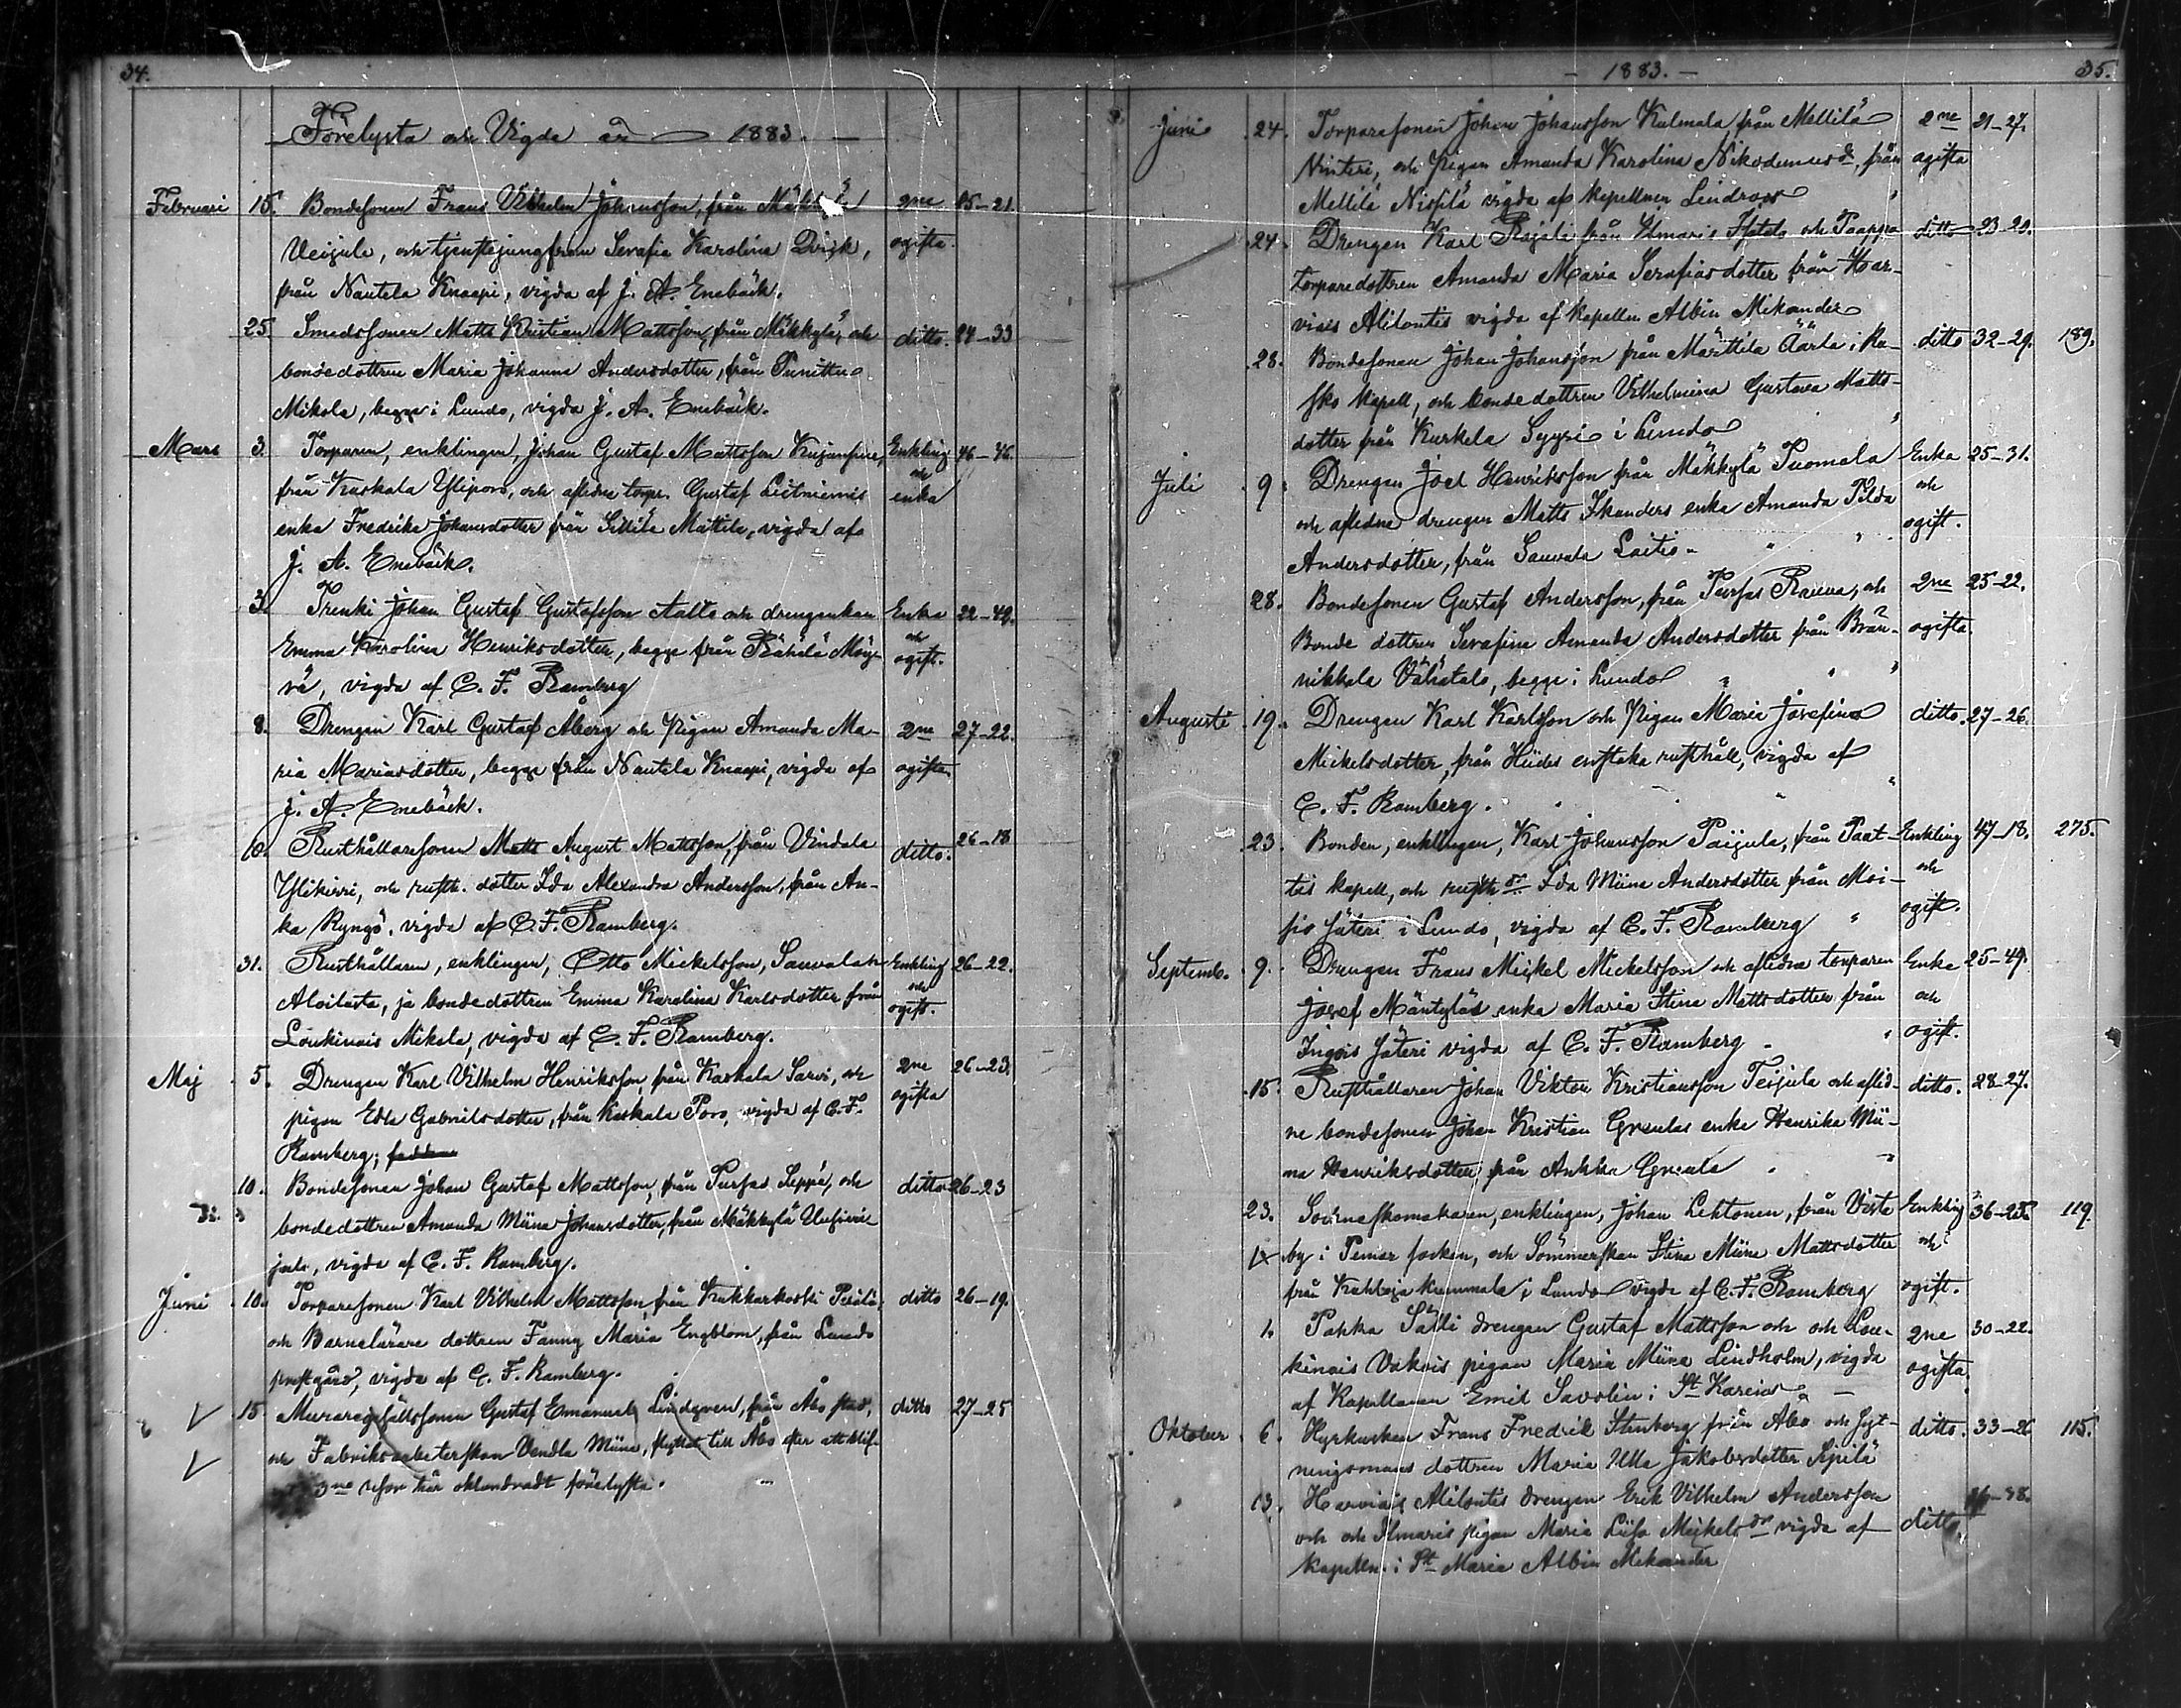 34.
Förelysta och Vigda år 1883.
Februari 15. Bondesonen Frans Vilhelm Johansson, från 2ne 25-21.
Veijula, och tjenstejungfrun Serafia Karolina Qvick, ogifta.
från Nautela Knaapi, vigda af J. A. Enebäck.
25. Smedssonen Matts Kristian Mattsson, från Mäkkylä, och ditto. 24-33
bondedottren Maria Johanna Andersdotter, från Punittu
Mikola, begge i Lundo, vigda J. A. Enebäck.
Mars 3. Torparen, enklingen, Johan Gustaf Mattsson Kujanpää, Enkling 46-46.
från Kaskala Ylipovo, och aflidne torp. Gustaf Leitniemis och
enka Fredrika Johansdotter från Sillilä Mattila, vigda af enka
J. A. Enebäck.
3. Trenki Johan Gustaf Gustafsson Aalto och drengenkan Enka 22-49.
Emma Karolina Henriksdotter, begge från Rähälä Möy- och
rä, vigda af C. F. Ramberg ogift.
8. Drengen Karl Gustaf Åberg och pigan Amanda Ma- 2ne 27-22.
ria Mariasdotter, begge från Nautela Knaapi, vigda af ogifta
J. A. Enebäck.
10. Rusthållarsonen Matts August Mattsson, från Vindala ditto. 26-18
Ylikirri, och rusth. dotter Ida Alexandra Andersson, från An-
ka Ryngö, vigda af C. F. Ramberg.
31. Rusthållaren, enklingen, Otto Mickelsson, Sauvalan Enkling 26-22.
Aloilasta, ja bondedottren Emma Karolina Karlsdotter från och
Loukinais Mikola, vigda af C. F. Ramberg. ogift.
Maj 5. Drengen Karl Vilhelm Henriksson från Kaskala Sarvi, och 2ne 26-23.
pigan Edla Gabrielsdotter, från Kaskala Povo, vigda af C. F. ogifta
Ramberg;
10. Bondesonen Johan Gustaf Mattsson, från Purfas Seppä, och ditto 26-23
bondedottren Amanda Miina Johansdotter, från Mäkkylä
jala, vigda af C. F. Ramberg.
Juni 10. Torparesonen Karl Vilhelm Mattsson, från Kukkarkoski Perälä ditto 26-19.
och Barnalärare dottren Fanny Maria Engblom, från Lundo
prestgård, vigda af C. F. Ramberg.
15. Muraregesällssonen Gustaf Emanuel Lindgren, från Åbo stad, ditto 27-25
och Fabriksarbeterskan Vendla Miina, flyttat till Åbo efter att blif-
3ne resor här oklandradt förelysta.
- 1883. - 35.
Juni 24. Torparesonen Johan Johansson Kulmala från Mellilä 2ne 21-27.
Vinteri, och pigan Amanda Karolina Nikodemusdr, från ogifta
Mellilä Nissilä vigda af kapellmen Lindroos
24. Drengen Karl Rajala från Ilmaris Isotalo och Paappa ditto 23-20.
torparedottren Amanda Maria Serafiasdotter från Har-
vais Alilontis vigda af kapellen Albin Mikander
28. Bondesonen Johan Johansson från Marttila Äärla i Ru- ditto 32-29. 189.
sko kapell, och bondedottren Vilhelmina Gustava Matts-
dotter från Kurkela Syyri i Lundo "
Juli 9. Drengen Joel Henriksson från Mäkkylä Tuomala Enka 25-31.
och aflidne drengen Matts Ikanders enka Amanda Tilda och
Andersdotter, från Sauvala Laitis " " " ogift.
28. Bondesonen Gustaf Andersson, från Purfas Rauva, och 2ne 25-22.
Bonde dottren Serafina Amanda Andersdotter från Brän- ogifta.
nikkala Vähätalo, begge i Lundo " " "
Augusti 19. Drengen Karl Karlsson och Pigan Maria Josefina ditto. 27-26.
Mickelsdotter från Hiides enstaka rusthåll, vigda af
C. F. Ramberg. " " "
23. Bonden, enklingen, Karl Johansson Päijula, från Paat- Enkling 47-18. 275.
tis kapell, och rusth dr Ida Miina Andersdotter från Moi- och
sio Säteri i Lundo, vigda af C. F. Ramberg " ogift.
Septemb. 9. Drengen Frans Mickel Mickelsson och aflidne torparen Enka 25-49.
Josef Mäntyläs enka Maria Stina Mattsdotter från och
Ingois Säteri vigda af C. F. Ramberg " ogift.
15. Rusthållaren Johan Viktor Kristiansson Teijula och aflid- ditto. 28-27.
ne bondesonen Johan Kristian Greulas enka Henrika Mii-
na Henriksdotter från Ankka Greula "
23. Socknaskomakaren, enklingen, Johan Lehtonen, från Vista Enkling 36-25. 119.
by i Pemar socken, och Sömmerskan Stina Miina Mattsdotter och
från Kuhloja Kummala i Lundo vigda af C. F. Ramberg ogift.
1. Pahka Säili drengen Gustaf Mattsson och och Lou- 2ne 30-22.
kinais Vakois pigan Maria Miina Lindholm, vigda ogifta.
af Kapellanen Emil Savolin i St Karins
Oktober 6. Hyrkusken Frans Fredrik Stenberg från Åbo och Syt- ditto. 33-26 115.
ningsmans dottren Maria Ulla Jakobsdotter Sipilä
13. Harvais Alilontis drengen Erik Vilhelm Andersson -38.
och och Ilmaris pigan Maria Liisa Mickelsdr vigda af ditto.
Kapelln. i St Maria Albin Mikander